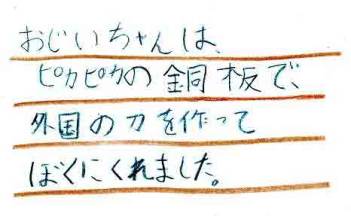 おじいちゃんは、
ピカピカの銅板で、
外国の刀を作って
ぼくにくれました。